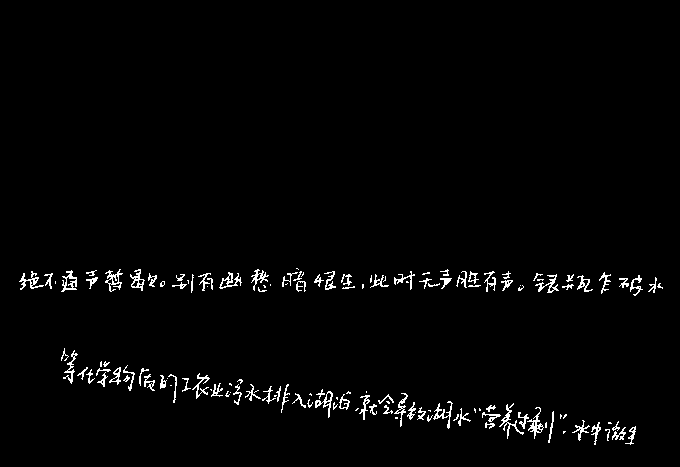 绝不通声暂歇。别有幽愁暗恨生,此时无声胜有声。银瓶乍破水
等化学物质的工农业污水排入湖泊,就会导致湖水“营养过剩”,水中微生